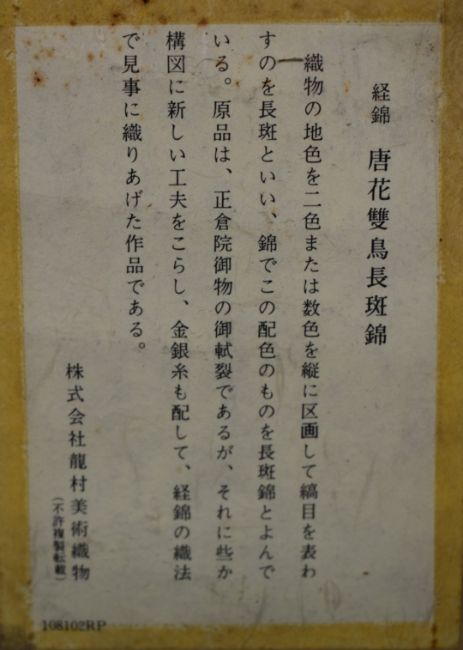 経錦 唐花雙鳥長斑錦
織物の地色を二色または数色を縦に区画して縞目を表わ
すのを長斑といい、錦でこの配色のものを長斑錦とよんで
いる。原品は、正倉院御物の御軾裂であるが、それに些か
構図に新しい工夫をこらし、金銀糸も配して、経錦の織法
で見事に織りあげた作品である。
株式会社龍村美術織物
(不許複製転載)
108102RP